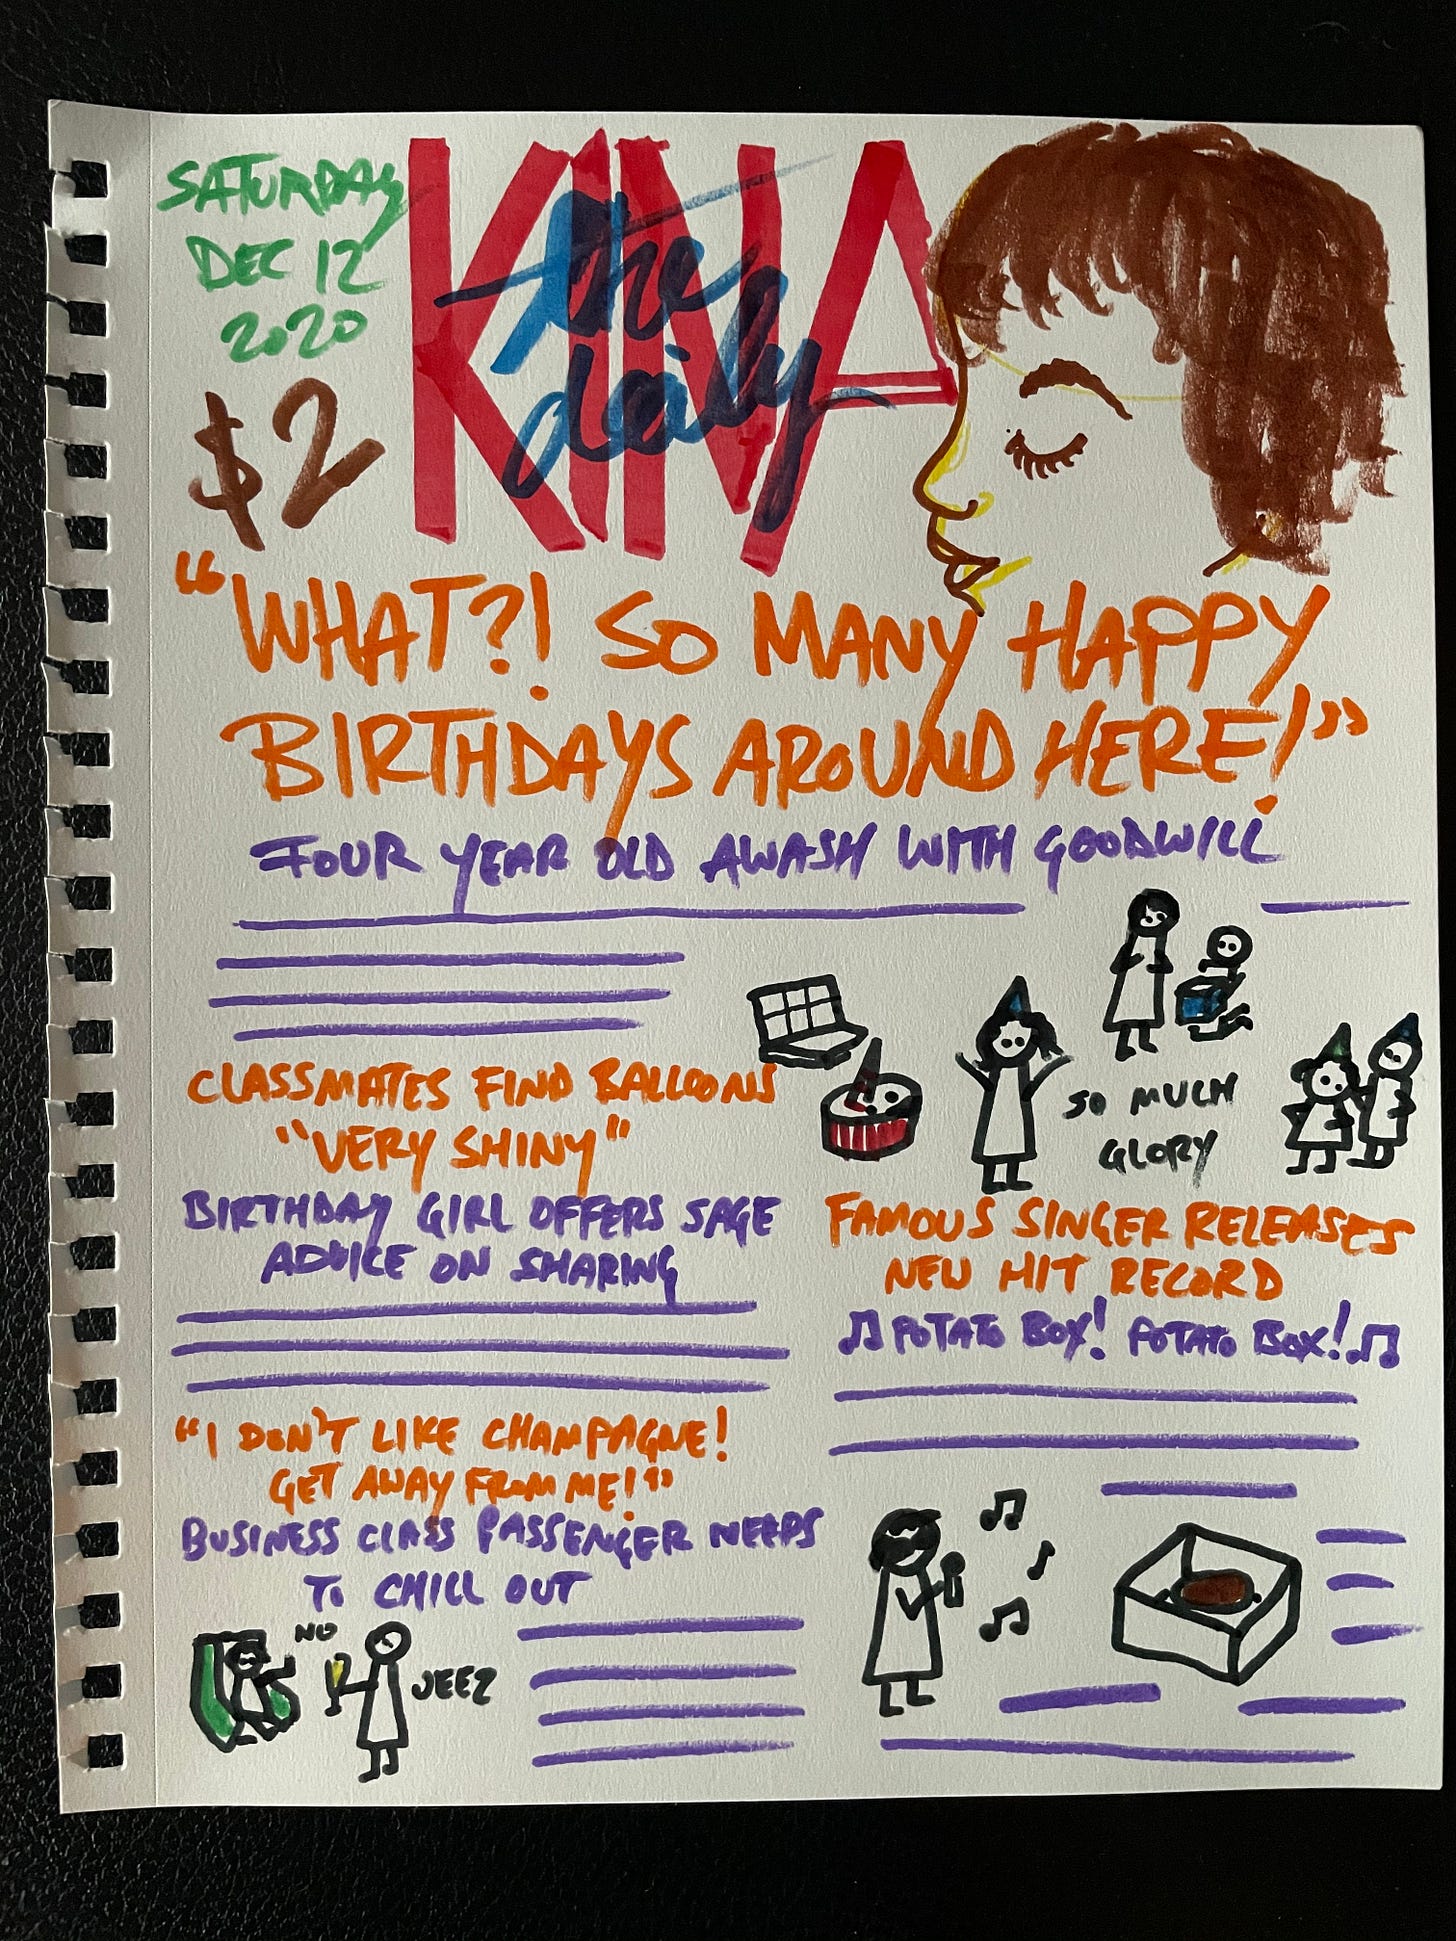 SATURDAY
DEC 12
2020
$2
the daily
KINA
"WHAT?! SO MANY HAPPY
BIRTHDAYS AROUND HERE!"
FOUR YEAR OLD AWASH WITH GOODWILL
CLASSMATES FIND BALLOONS
"VERY SHINY"
BIRTHDAY GIRL OFFERS SAGE
ADVICE ON SHARING
"I DON'T LIKE CHAMPAGNE!
GET AWAY FROM ME!"
BUSINESS CLASS PASSENGER NEEDS
TO CHILL OUT
NO
JEEZ
SO MUCH
GLORY
FAMOUS SINGER RELEASES
NEW HIT RECORD
♫ POTATO BOX! POTATO BOX! ♫